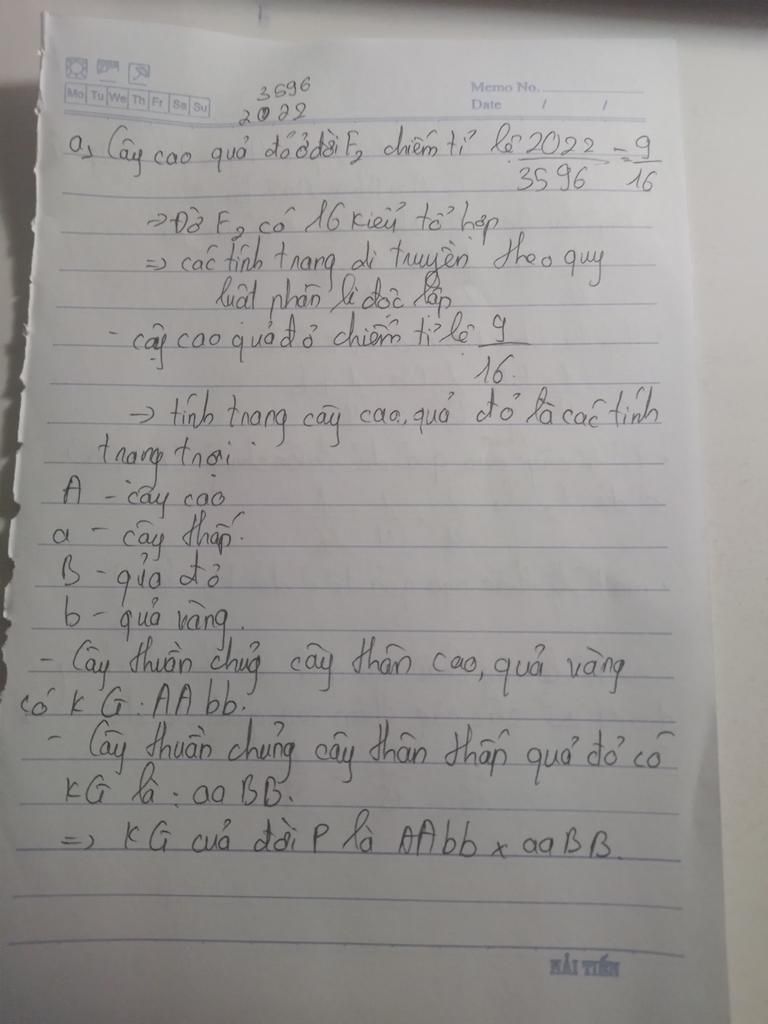 Mo Tu We Th Fr Sa Su
3596
2022
Memo No.
Date / /
a, Cây cao quả đỏ ở đời F2 chiếm tỉ lệ 2022/3596 = 9/16
→ Đời F2 có 16 kiểu tổ hợp
=> các tính trạng di truyền theo quy
luật phân li độc lập
- cây cao quả đỏ chiếm tỉ lệ 9/16.
→ tính trạng cây cao, quả đỏ là các tính
trạng trội
A - cây cao
a - cây thấp.
B - quả đỏ
b - quả vàng.
- Cây thuần chủng cây thân cao, quả vàng
có KG: AAbb.
- Cây thuần chủng cây thân thấp quả đỏ có
KG là: aaBB.
=> KG của đời P là AAbb x aaBB.
HẢI TIẾN